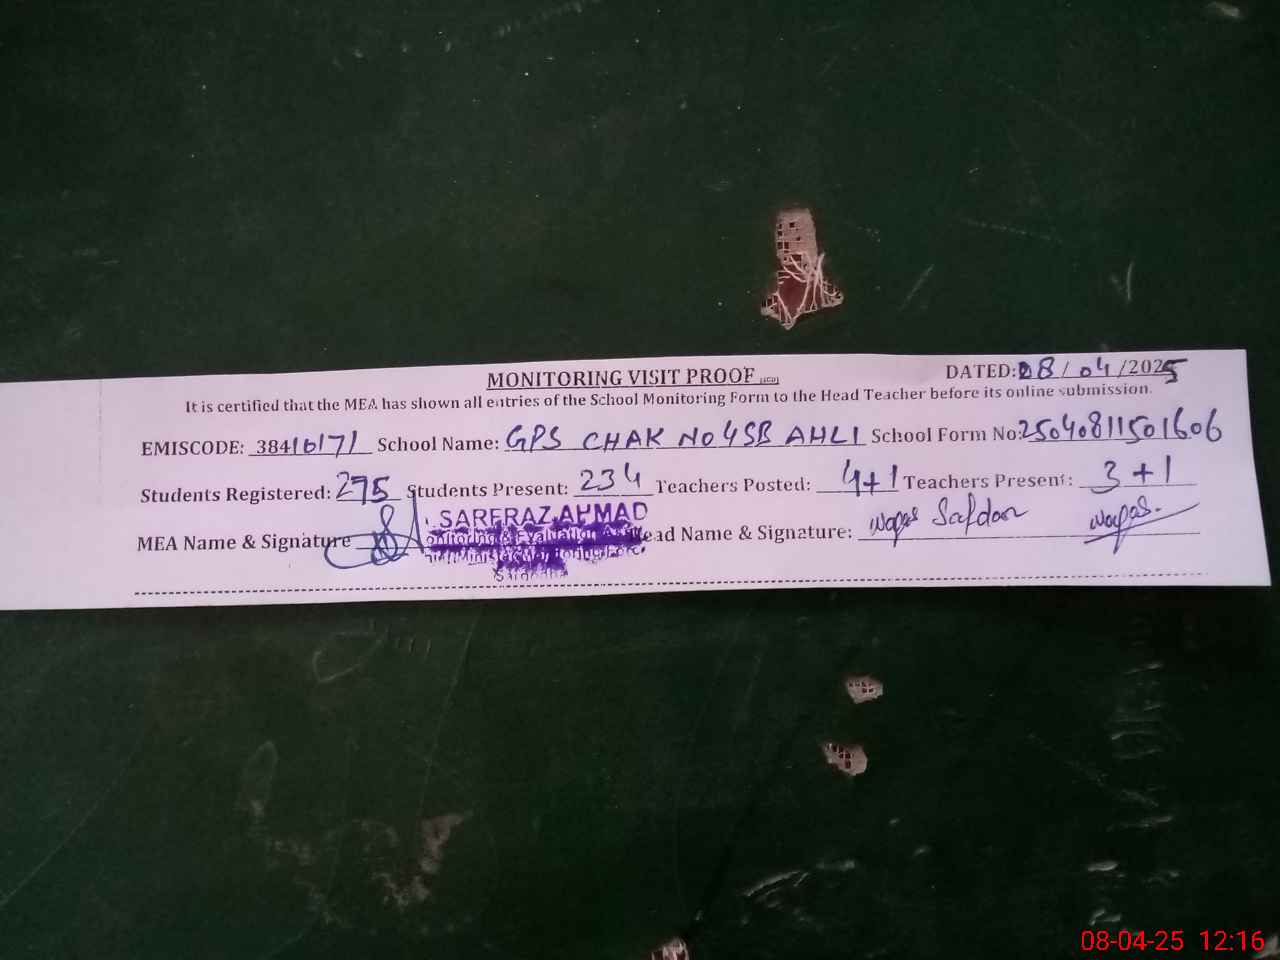 MONITORING VISIT PROOF
DATED: 08/04/2025
It is certified that the MEA has shown all entries of the School Monitoring Form to the Head Teacher before its online submission.
EMISCODE: 38410171 School Name: GPS CHAK NO 4SB AHLI School Form No: 2504081150 1606
Students Registered: 275 Students Present: 234 Teachers Posted: 4+1 Teachers Present: 3+1
MEA Name & Signature SARFRAZ AHMAD Head Name & Signature: Waqas Safdar Waqas.
Monitoring & Evaluation
Sargodha
08-04-25 12:16